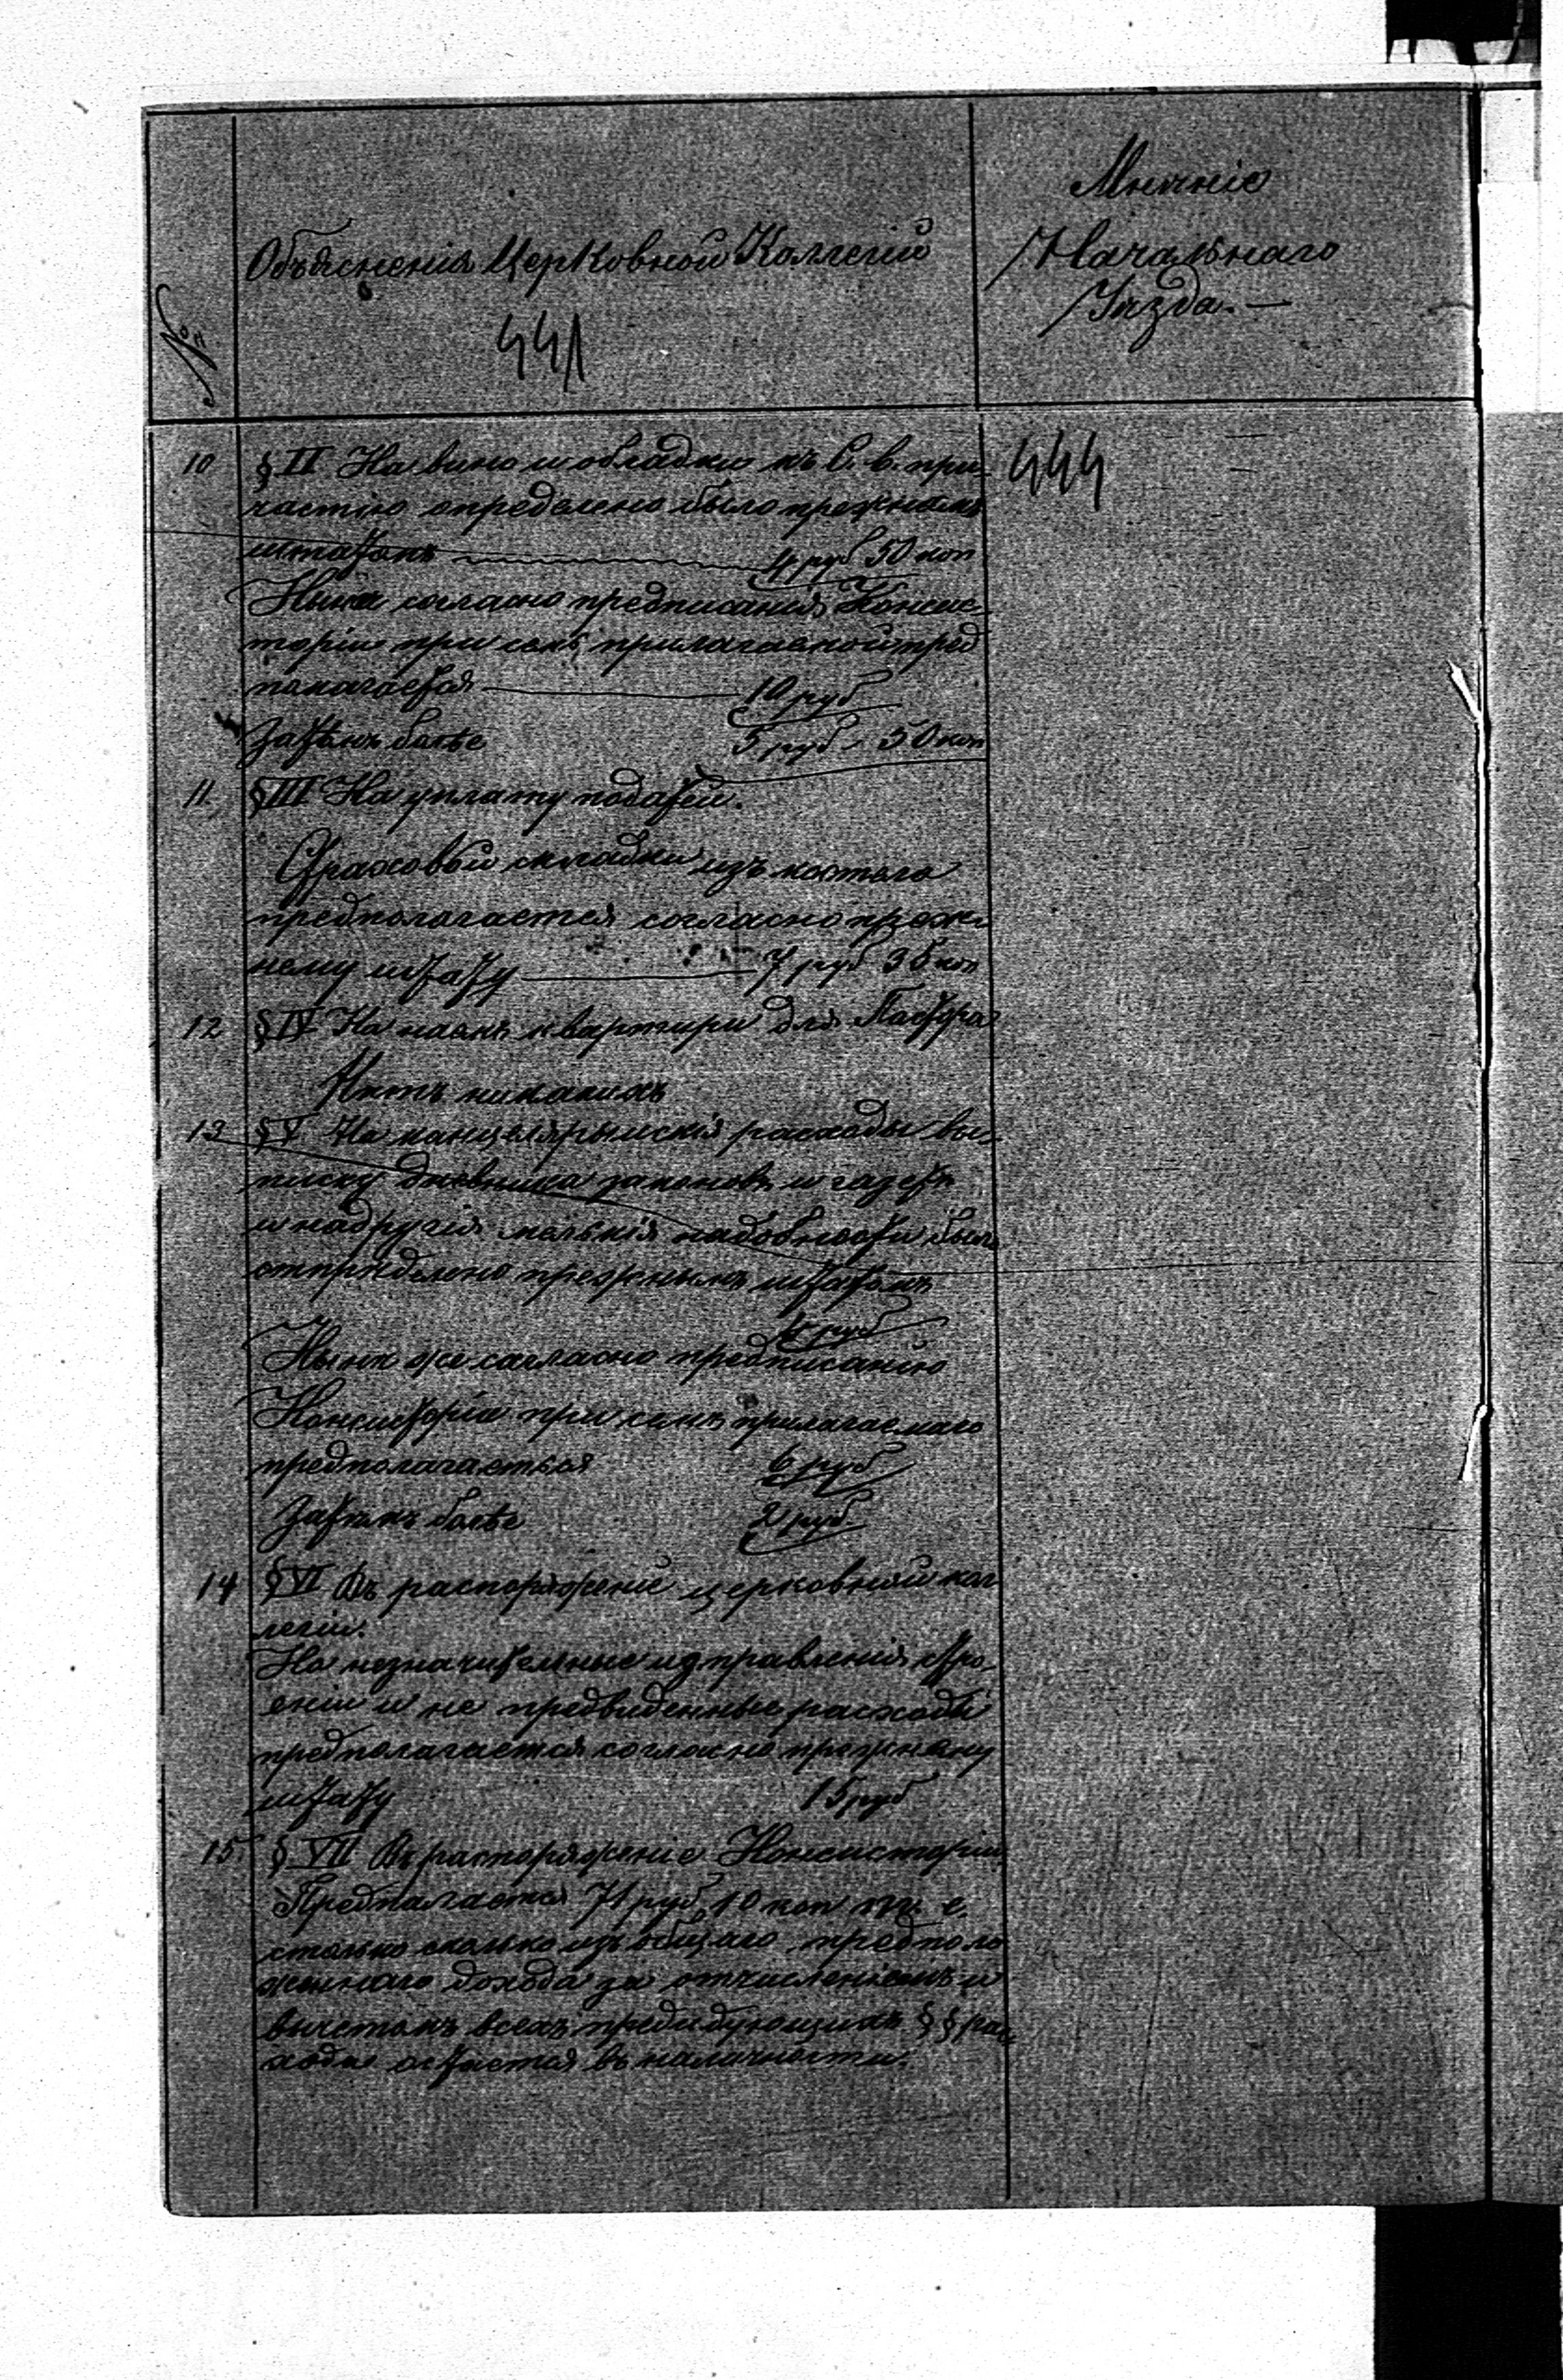 №
Объясненія Церковной Коллегіи
441
Мнѣніе
Начальнаго
Уѣзда. —
10 § II На вино и обладки къ С. в. при-
444
частію определено было прежнимъ
штатомъ 4 руб 50 коп
Нынѣ согласно предписанія Консис-
торіи при семъ прилагаемой пред
полагается 10 руб
Затѣмъ болѣе 5 руб. 50 коп
11. § III На уплату податей.
Страховой складки изъ костела
предполагается согласно преж-
нему штату 7 руб 35 коп
12 § IV На наемъ квартири для Пастора
Нѣтъ никакихъ
13 § V На канцелярыйскія расходы вы-
писку дневника законовъ и газетъ
и надругія мелькія надобности было
отпредѣлено прежнымъ штатомъ
4 руб
Нынѣ же согласно предписанію
Консисторіи при семъ прилагаемаго
предполагаеться 6 руб
Затѣмъ болѣе 2 руб
14 § VI Въ распоряженіе церковной кол
легіи.
На незначительные изправленія стро-
еніи и не предвиденные расходы
предполагается согласно прежнему
штату 15 руб
15. § VII Въ распоряженіе Консисторіи
Предпалается 71 руб, 10 коп т. е.
столько сколько изъ общаго предполо
женнаго дохода за отчисленіемъ и
вычетомъ всехъ предидующихъ § § рас-
хода остается въ наличности.